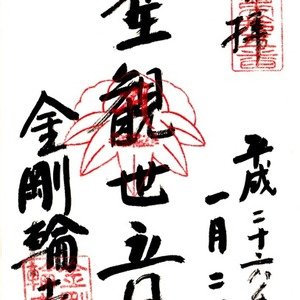 拝
平成二十六年
一月二
聖観世音
金剛輪寺